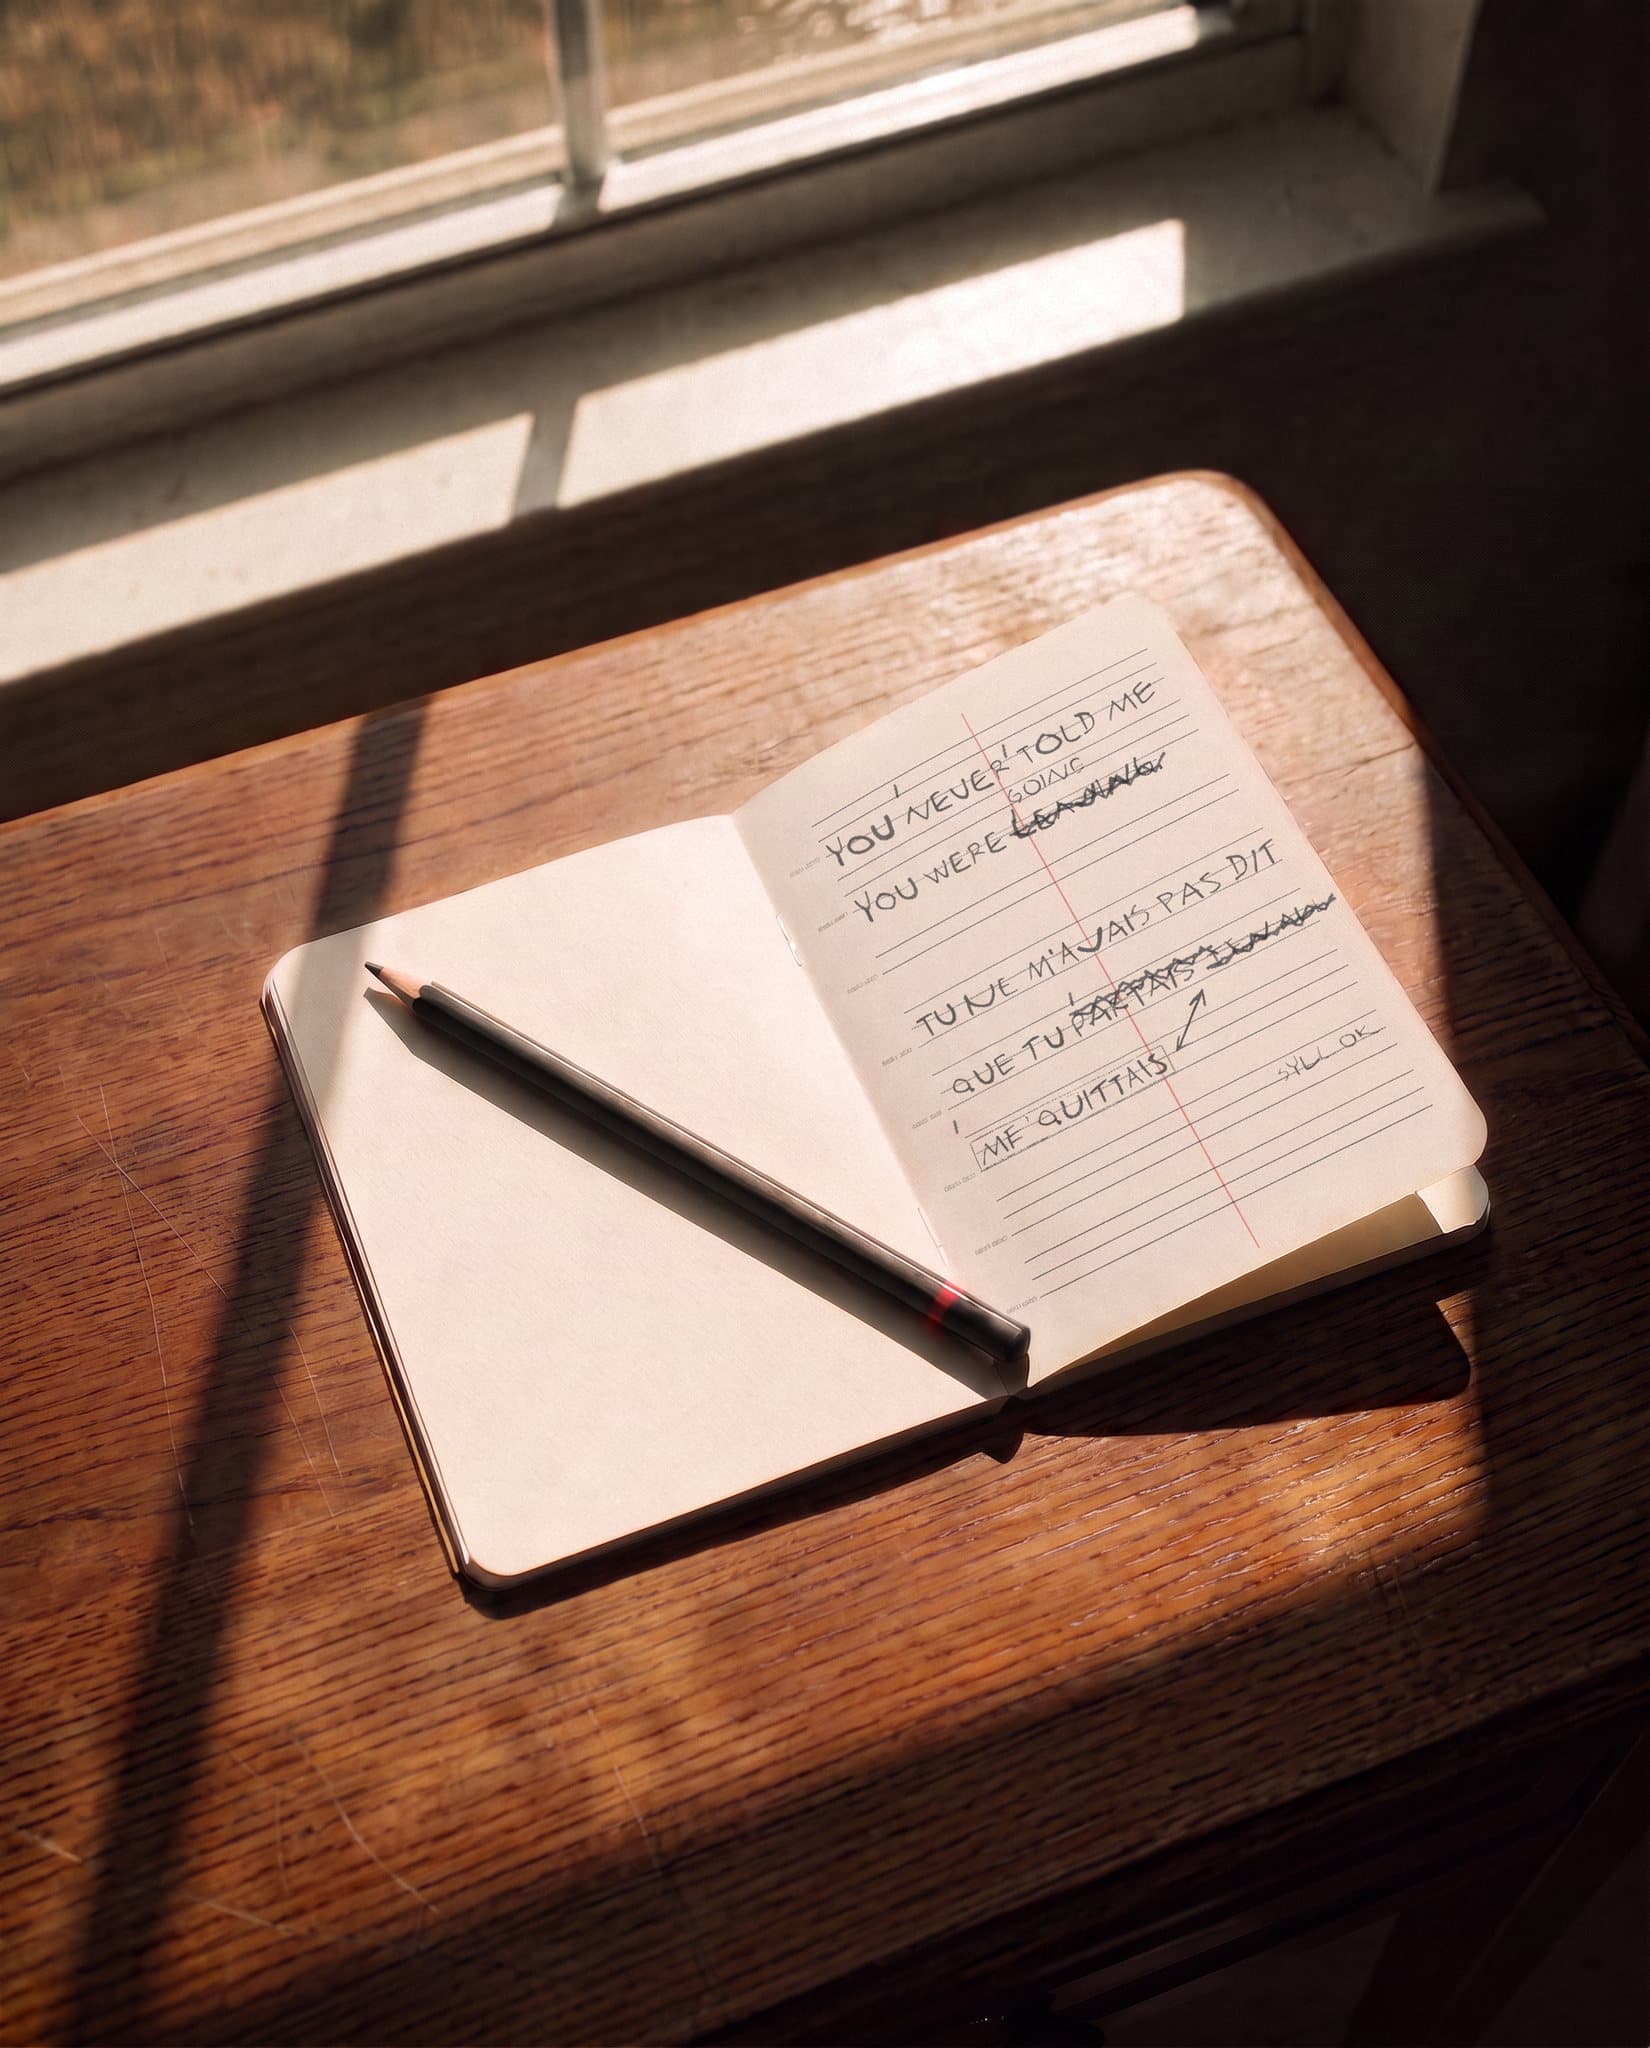 YOU NEVER TOLD ME
GOING
YOU WERE LEAVING
TU NE M'AVAIS PAS DIT
QUE TU PARTAIS
ME QUITTAIS
SYLL OK